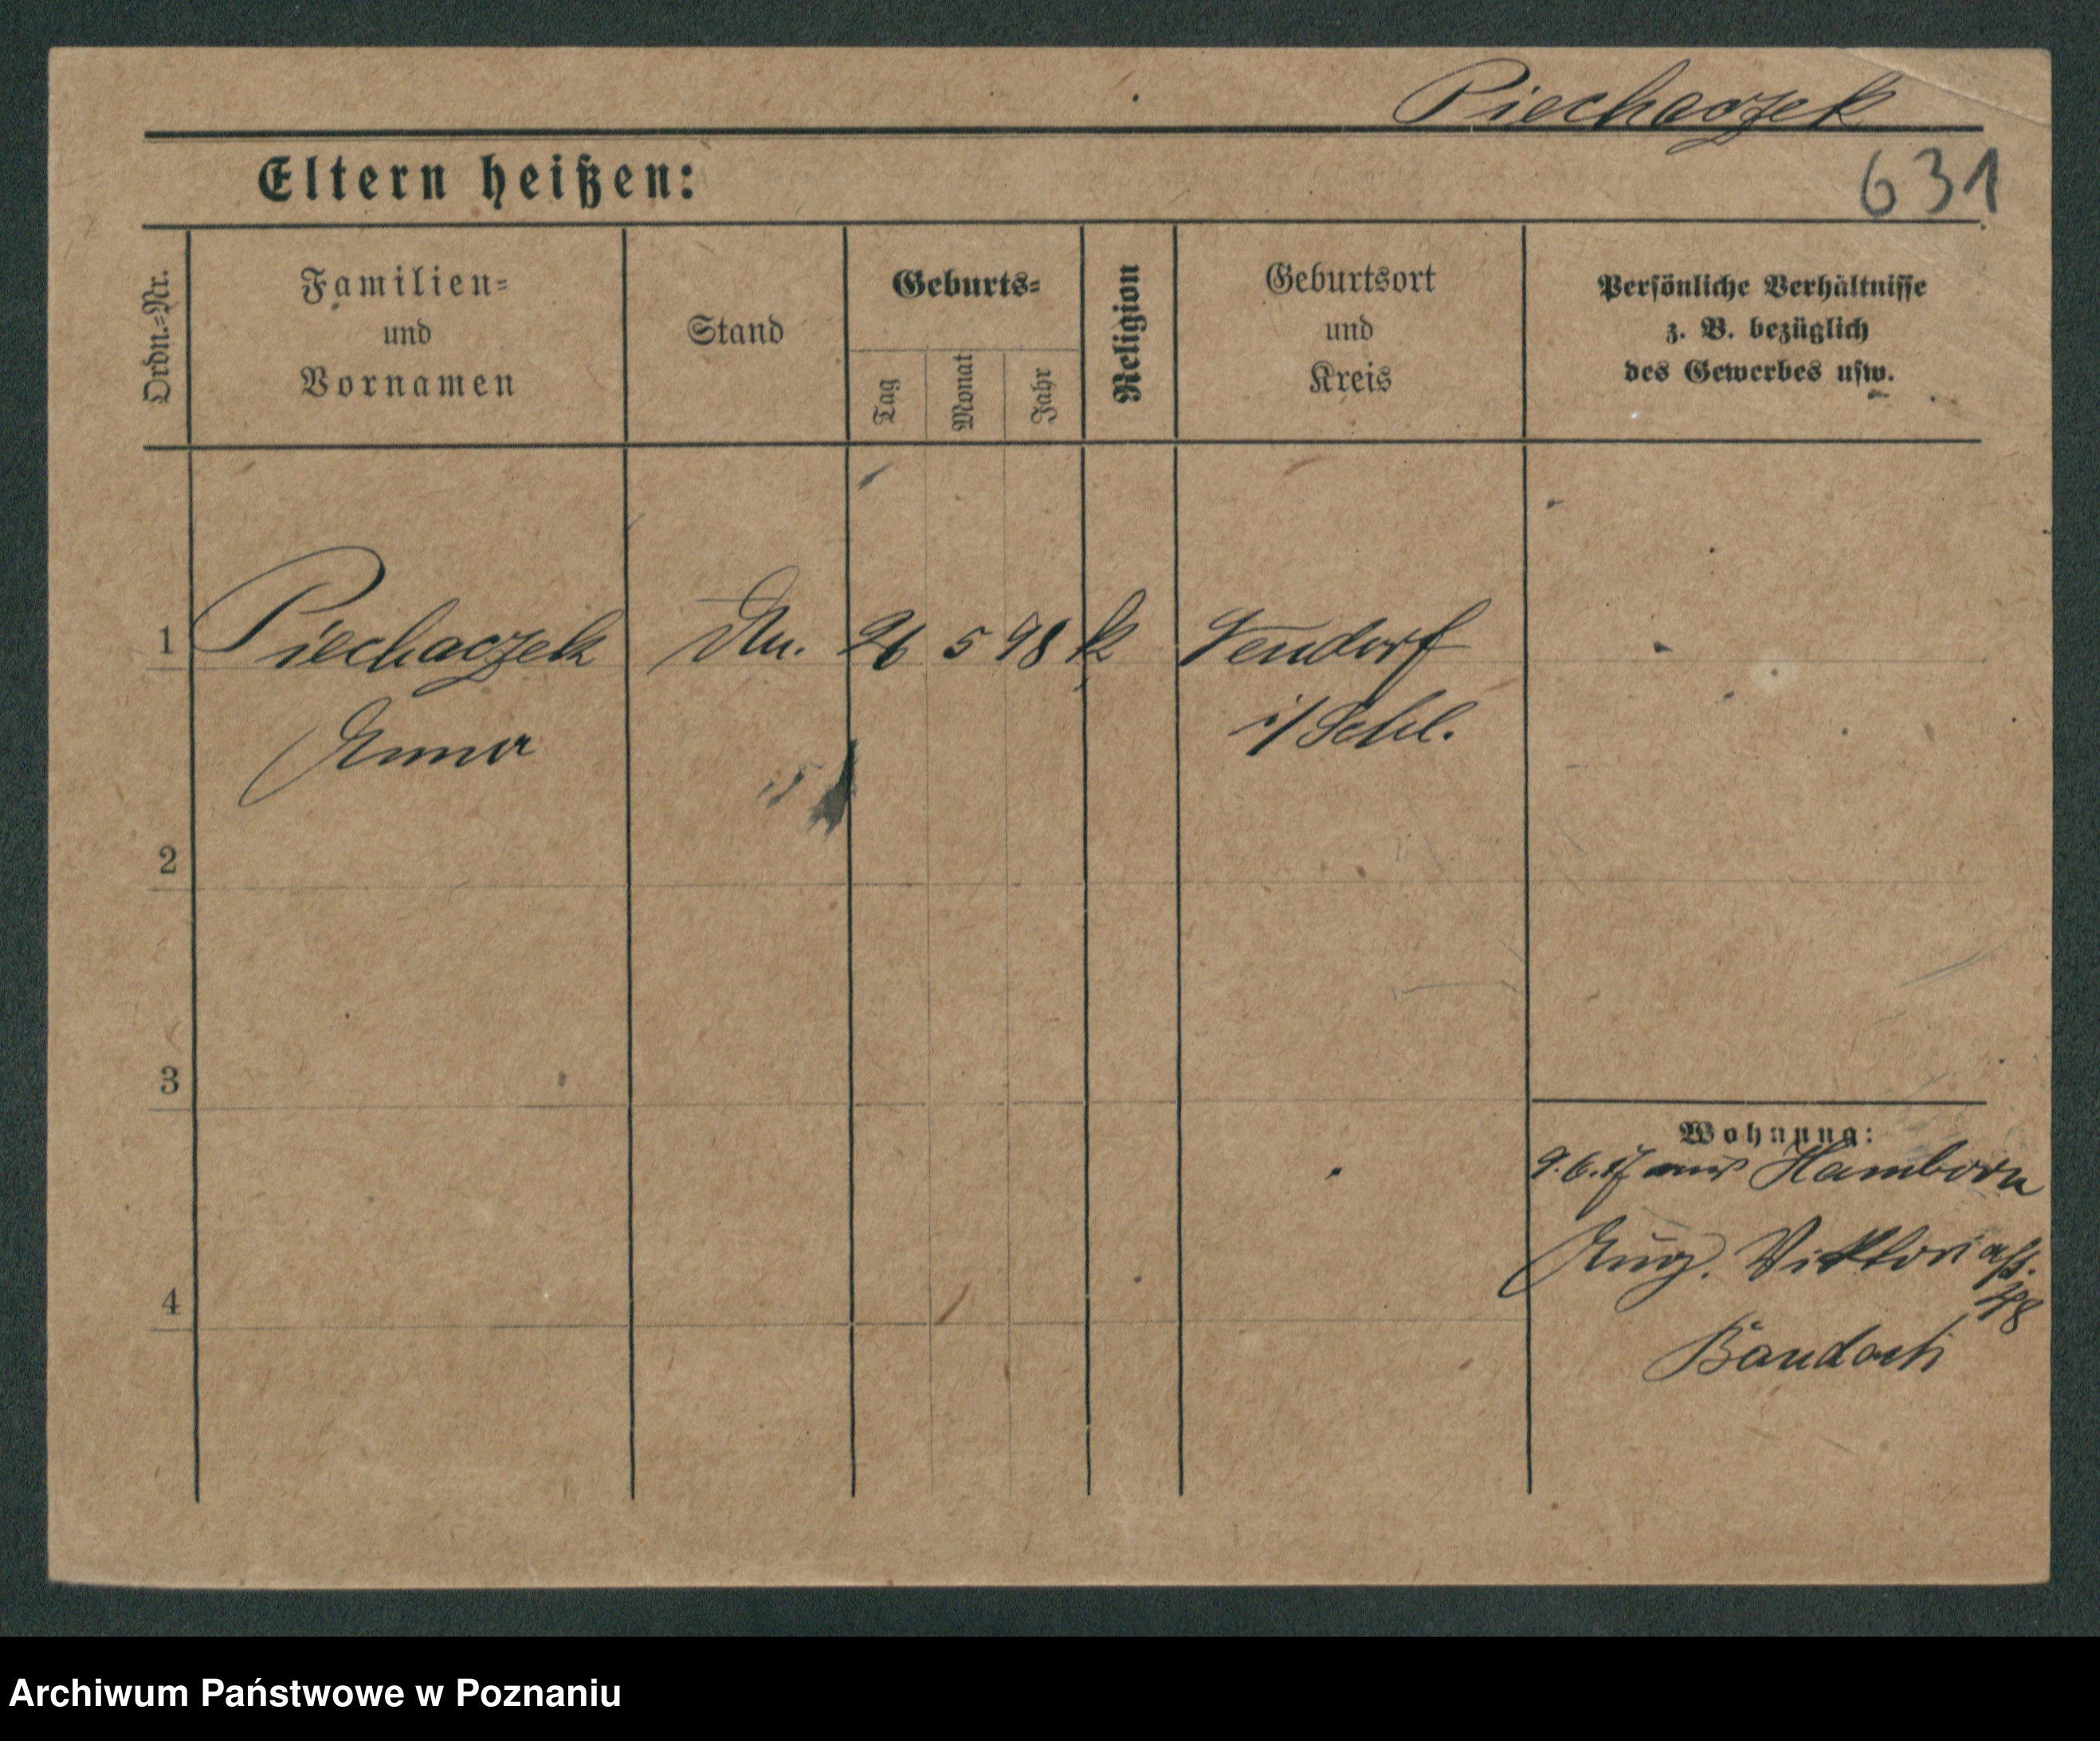 Piechaczek
Eltern heißen:
631
Ordn.-Nr.
Familien-
und
Vornamen
Stand
Geburts-
Tag
Monat
Jahr
Religion
Geburtsort
und
Kreis
Persönliche Verhältnisse
z. B. bezüglich
des Gewerbes usw.
1 Piechaczek 26 5 98 k
Anna i/Schl.
2
3
4
Wohnung:
9.6.17 aus Hamborn
Aug. Viktoriastr.
48